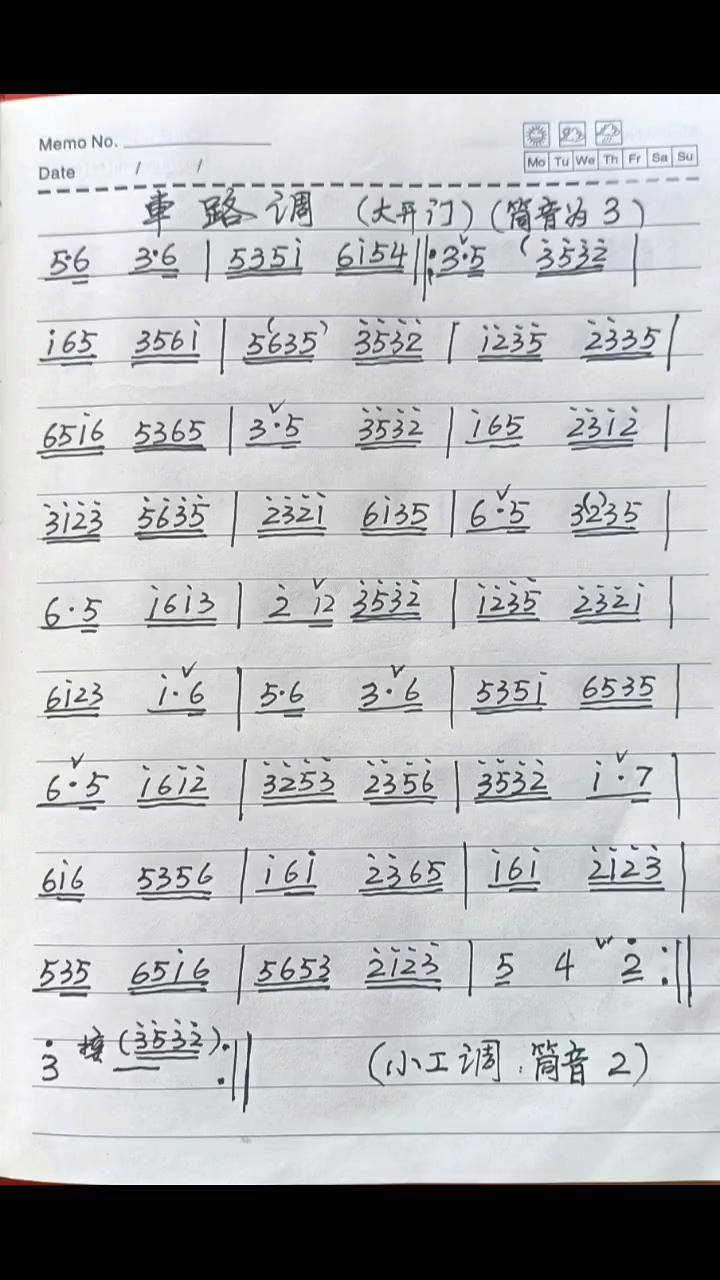 Memo No.
Date / /
Mo Tu We Th Fr Sa Su
車路调 (大开门) (筒音为3)
5·6 3·6 | 535i 6i54 ‖: 3·5 (3̇5̇3̇2̇ |
i65 356i | 5(635) 3̇5̇3̇2̇ | i2̇3̇5̇ 2̇3̇35 |
65i6 5365 | 3·5 3̇5̇3̇2̇ | i65 2̇3̇i2̇ |
3̇i2̇3̇ 5̇6̇3̇5̇ | 2̇3̇2̇i 6i35 | 6·5 3(2)35 |
6·5 i6i3 | 2̇ i2 3̇5̇3̇2̇ | i2̇3̇5̇ 2̇3̇2̇i |
6i23 i·6 | 5·6 3·6 | 535i 6535 |
6·5 i6i2̇ | 3̇2̇5̇3̇ 2̇3̇5̇6̇ | 3̇5̇3̇2̇ i·7 |
6i6 5356 | i6i 2̇3̇65 | i6i 2̇i2̇3̇ |
535 65i6 | 5653 2̇i2̇3̇ | 5 4 2̇ :‖
3̇ 接 (3̇5̇3̇2̇) :‖ (小工调:筒音2)